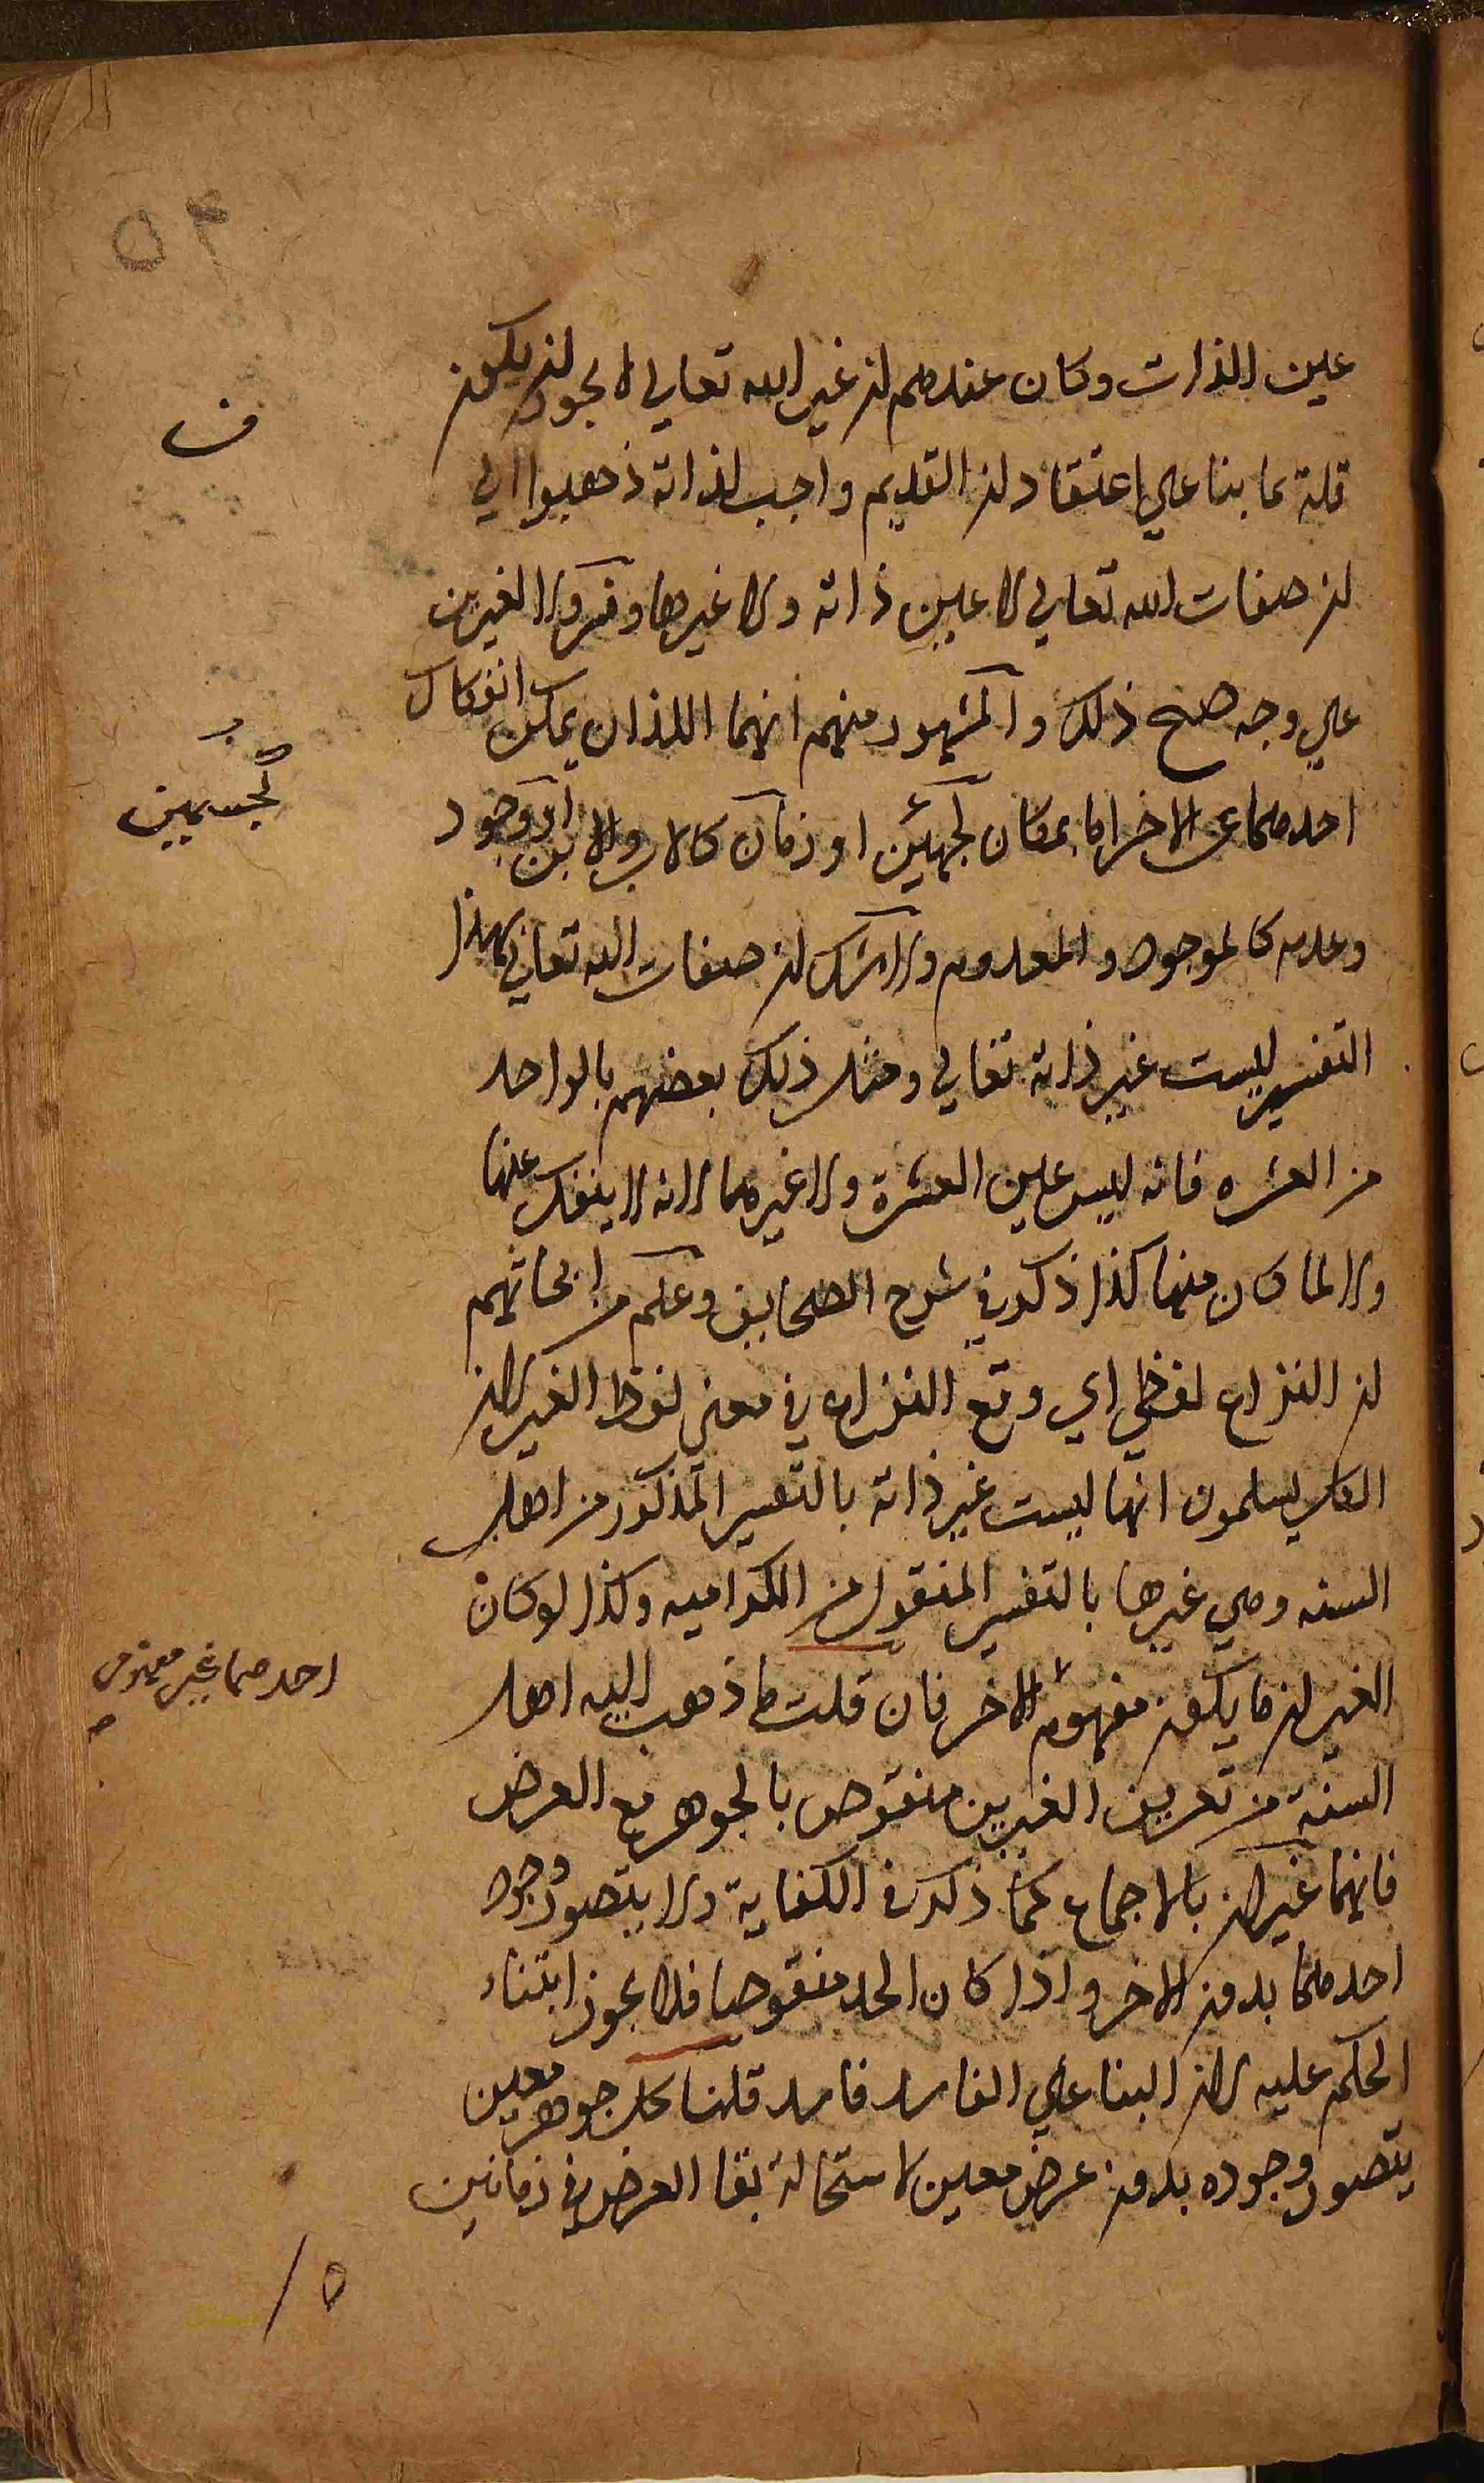 ٥٤
عين الذات وكان عندهم ان غير الله تعالى لا يجوز ان يكون
قديما بنا علي اعتقاد ان القديم واجب لذاته ذهبوا الي
ف
ان صفات الله تعالي لا عين ذاته ولا غيرها وفسروا الغيرين
علي وجه صح ذلك والمشهور منهم انهما اللذان يمكن انفكاك
احدهما عن الاخر اما بمكان كجهتين او زمان كالاب والابن او وجود
كجسمين
وعدم كالموجود والمعدوم ولا شك ان صفات الله تعالي بهذا
التفسير ليست غير ذاته تعالي ومثل ذلك بعضهم بالواحد
من العشره فانه ليس عين العشرة ولا غيرهما لانه لا ينفك عنها
والا لما كان منها كذا ذكر في شرح الصحايف وعلم من ابحاثهم
ان النزاع لفظي اي وقع النزاع في معني لفظ الغير لان
الكل يسلمون انها ليست غير ذاته بالتفسير المذكور من اهل
السنه وهي غيرها بالتفسير المنقول من الكراميه وكذا لو كان
الغير ان ما يكون مفهوم الاخر فان قلت ما ذهب اليه اهل
احدهما غير مفهوم
السنة من تعريف الغيرين منقوض بالجوهر مع العرض
فانهما غير ان بالاجماع كما ذكر في الكفاية ولا يتصور وجود
احدهما بدون الاخر واذا كان الحد منقوضا فلا يجوز ابتناء
الحكم عليه لان البنا علي الفاسد فاسد قلنا كل جوهر معين
يتصور وجوده بدون عرض معين لاستحالة بقا العرض في زمانين